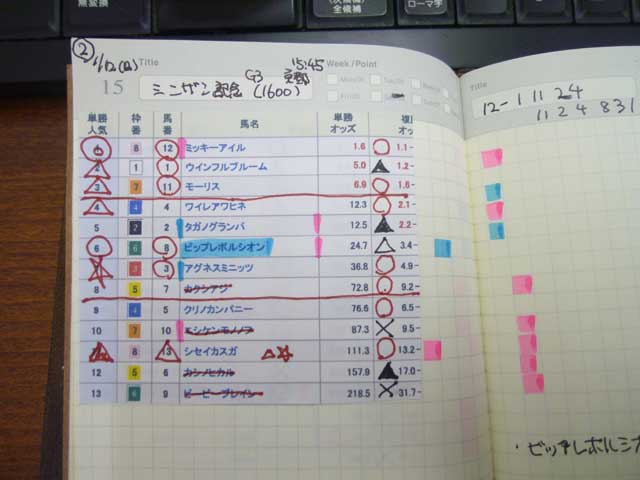 無変換
全候補
ローマ字
② 1/12(日)
Title
15:45
Week / Point
15
シンザン記念 G3 京都 (1600)
Title
12-1 11 24
11 24 831
単勝人気 枠番 馬番 馬名 単勝オッズ 複 オッ
8 12 ミッキーアイル 1.6 1.1-
2 1 1 ウインフルブルーム 5.0 1.2-
3 7 11 モーリス 6.9 1.6-
4 4 4 ウイレアワヒネ 12.3 2.1-
5 2 2 タガノグランパ 12.5 2.2-
6 6 8 ピップレボルシオン 24.7 3.4-
3 3 アグネスミニッツ 36.8 4.9-
8 5 7 72.8 9.2-
9 4 5 クリノカンパニー 76.6 6.5-
10 7 10 ニシケンモノノフ 87.3 9.5-
8 13 シセイカスガ 111.3 13.2-
12 5 6 カシノヒカル 157.9 17.0-
13 6 9 ピーピーブレイン 218.5 31.7-
・ピップレボルシオ